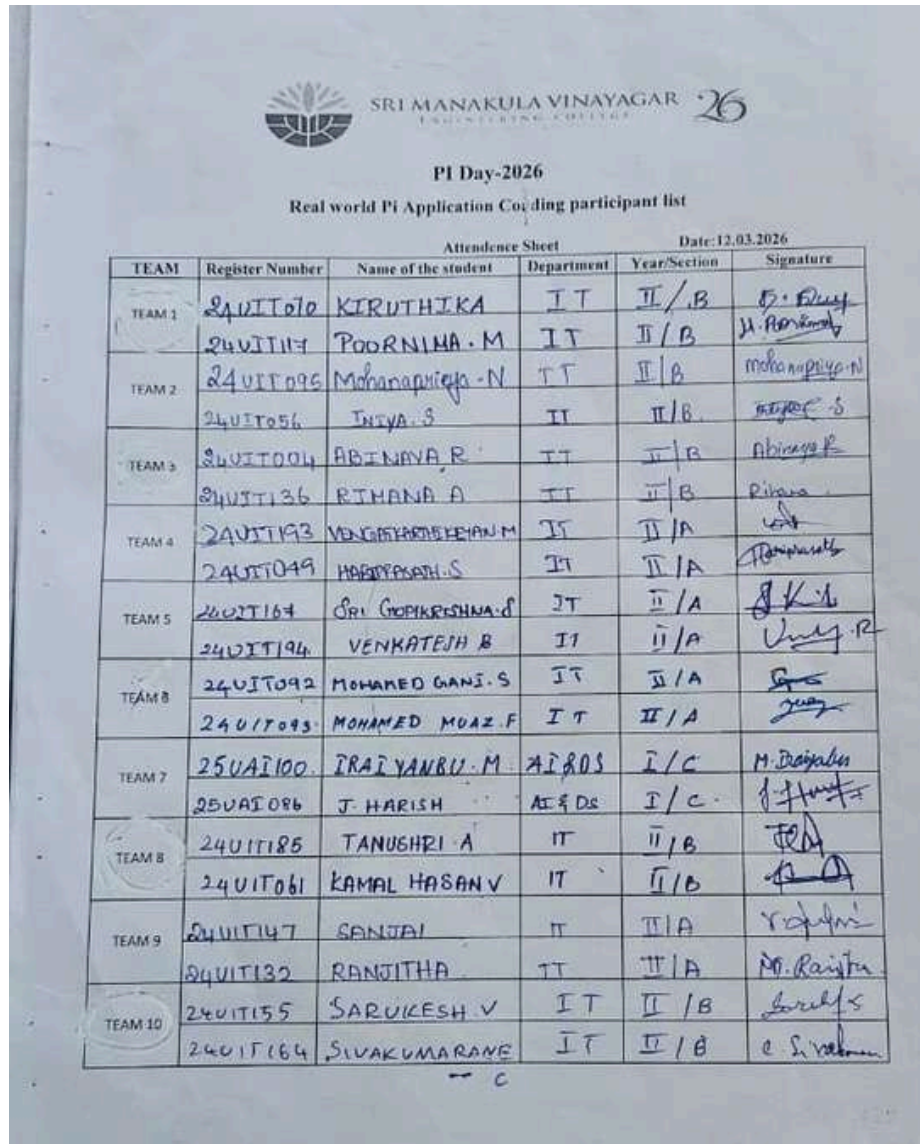 SRI MANAKULA VINAYAGAR 26
ENGINEERING COLLEGE
PI Day-2026
Real world Pi Application Co ding participant list
Attendence Sheet Date:12.03.2026
TEAM Register Number Name of the student Department Year/Section Signature
TEAM 1 24UIT070 KIRUTHIKA IT II/B
24UIT117 POORNIMA.M IT II/B
TEAM 2 24UIT095 Mohanapriya.N IT II/B mohanapriya.N
24UIT056 INIYA.S IT II/B
TEAM 3 24UIT004 ABINAYA R IT II/B Abinaya R
24UIT136 RIHANA A IT II/B Rihana
TEAM 4 24UIT193 M IT II/A
24UIT049 HARIPRASATH.S IT II/A
TEAM 5 24UIT167 SRI GOPIKRISHNA.S IT II/A
24UIT194 VENKATESH B IT II/A
TEAM 8 24UIT092 MOHAMED GANI.S IT II/A
24UIT093 MOHAMED MUAZ.F IT II/A
TEAM 7 25UAI100 IRAIYANBU.M AI&DS I/C
25UAI086 J. HARISH AI & DS I/C
TEAM 8 24UIT185 TANUSHRI A IT II/B
24UIT061 KAMAL HASAN V IT II/B
TEAM 9 24UIT147 SANJAI IT II/A
24UIT132 RANJITHA IT II/A
TEAM 10 24UIT155 SARUKESH.V IT II/B
24UIT164 SIVAKUMARANE IT II/B
C